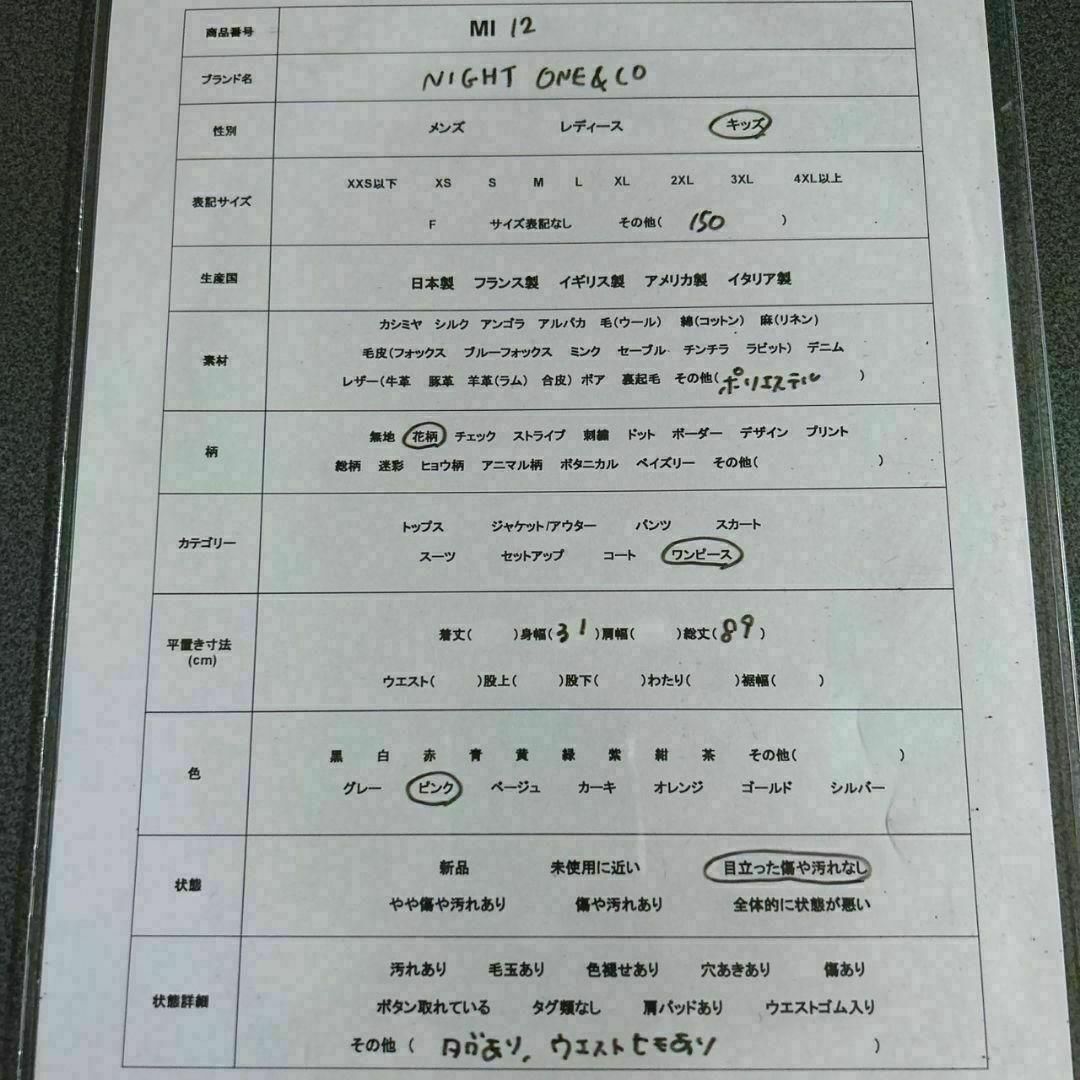 商品番号 MI 12
ブランド名 NIGHT ONE&CO
性別 メンズ レディース キッズ
表記サイズ XXS以下 XS S M L XL 2XL 3XL 4XL以上
F サイズ表記なし その他( 150 )
生産国 日本製 フランス製 イギリス製 アメリカ製 イタリア製
素材 カシミヤ シルク アンゴラ アルパカ 毛(ウール) 綿(コットン) 麻(リネン)
毛皮(フォックス ブルーフォックス ミンク セーブル チンチラ ラビット) デニム
レザー(牛革 豚革 羊革(ラム) 合皮) ボア 裏起毛 その他( ポリエステル )
柄 無地 花柄 チェック ストライプ 刺繍 ドット ボーダー デザイン プリント
総柄 迷彩 ヒョウ柄 アニマル柄 ボタニカル ペイズリー その他( )
カテゴリー トップス ジャケット/アウター パンツ スカート
スーツ セットアップ コート ワンピース
平置き寸法
(cm)
着丈( )身幅( 31 )肩幅( )総丈( 89 )
ウエスト( )股上( )股下( )わたり( )裾幅( )
色 黒 白 赤 青 黄 緑 紫 紺 茶 その他( )
グレー ピンク ベージュ カーキ オレンジ ゴールド シルバー
状態 新品 未使用に近い 目立った傷や汚れなし
やや傷や汚れあり 傷や汚れあり 全体的に状態が悪い
状態詳細 汚れあり 毛玉あり 色褪せあり 穴あきあり 傷あり
ボタン取れている タグ類なし 肩パッドあり ウエストゴム入り
その他 ( あり、ウエストヒモあり )